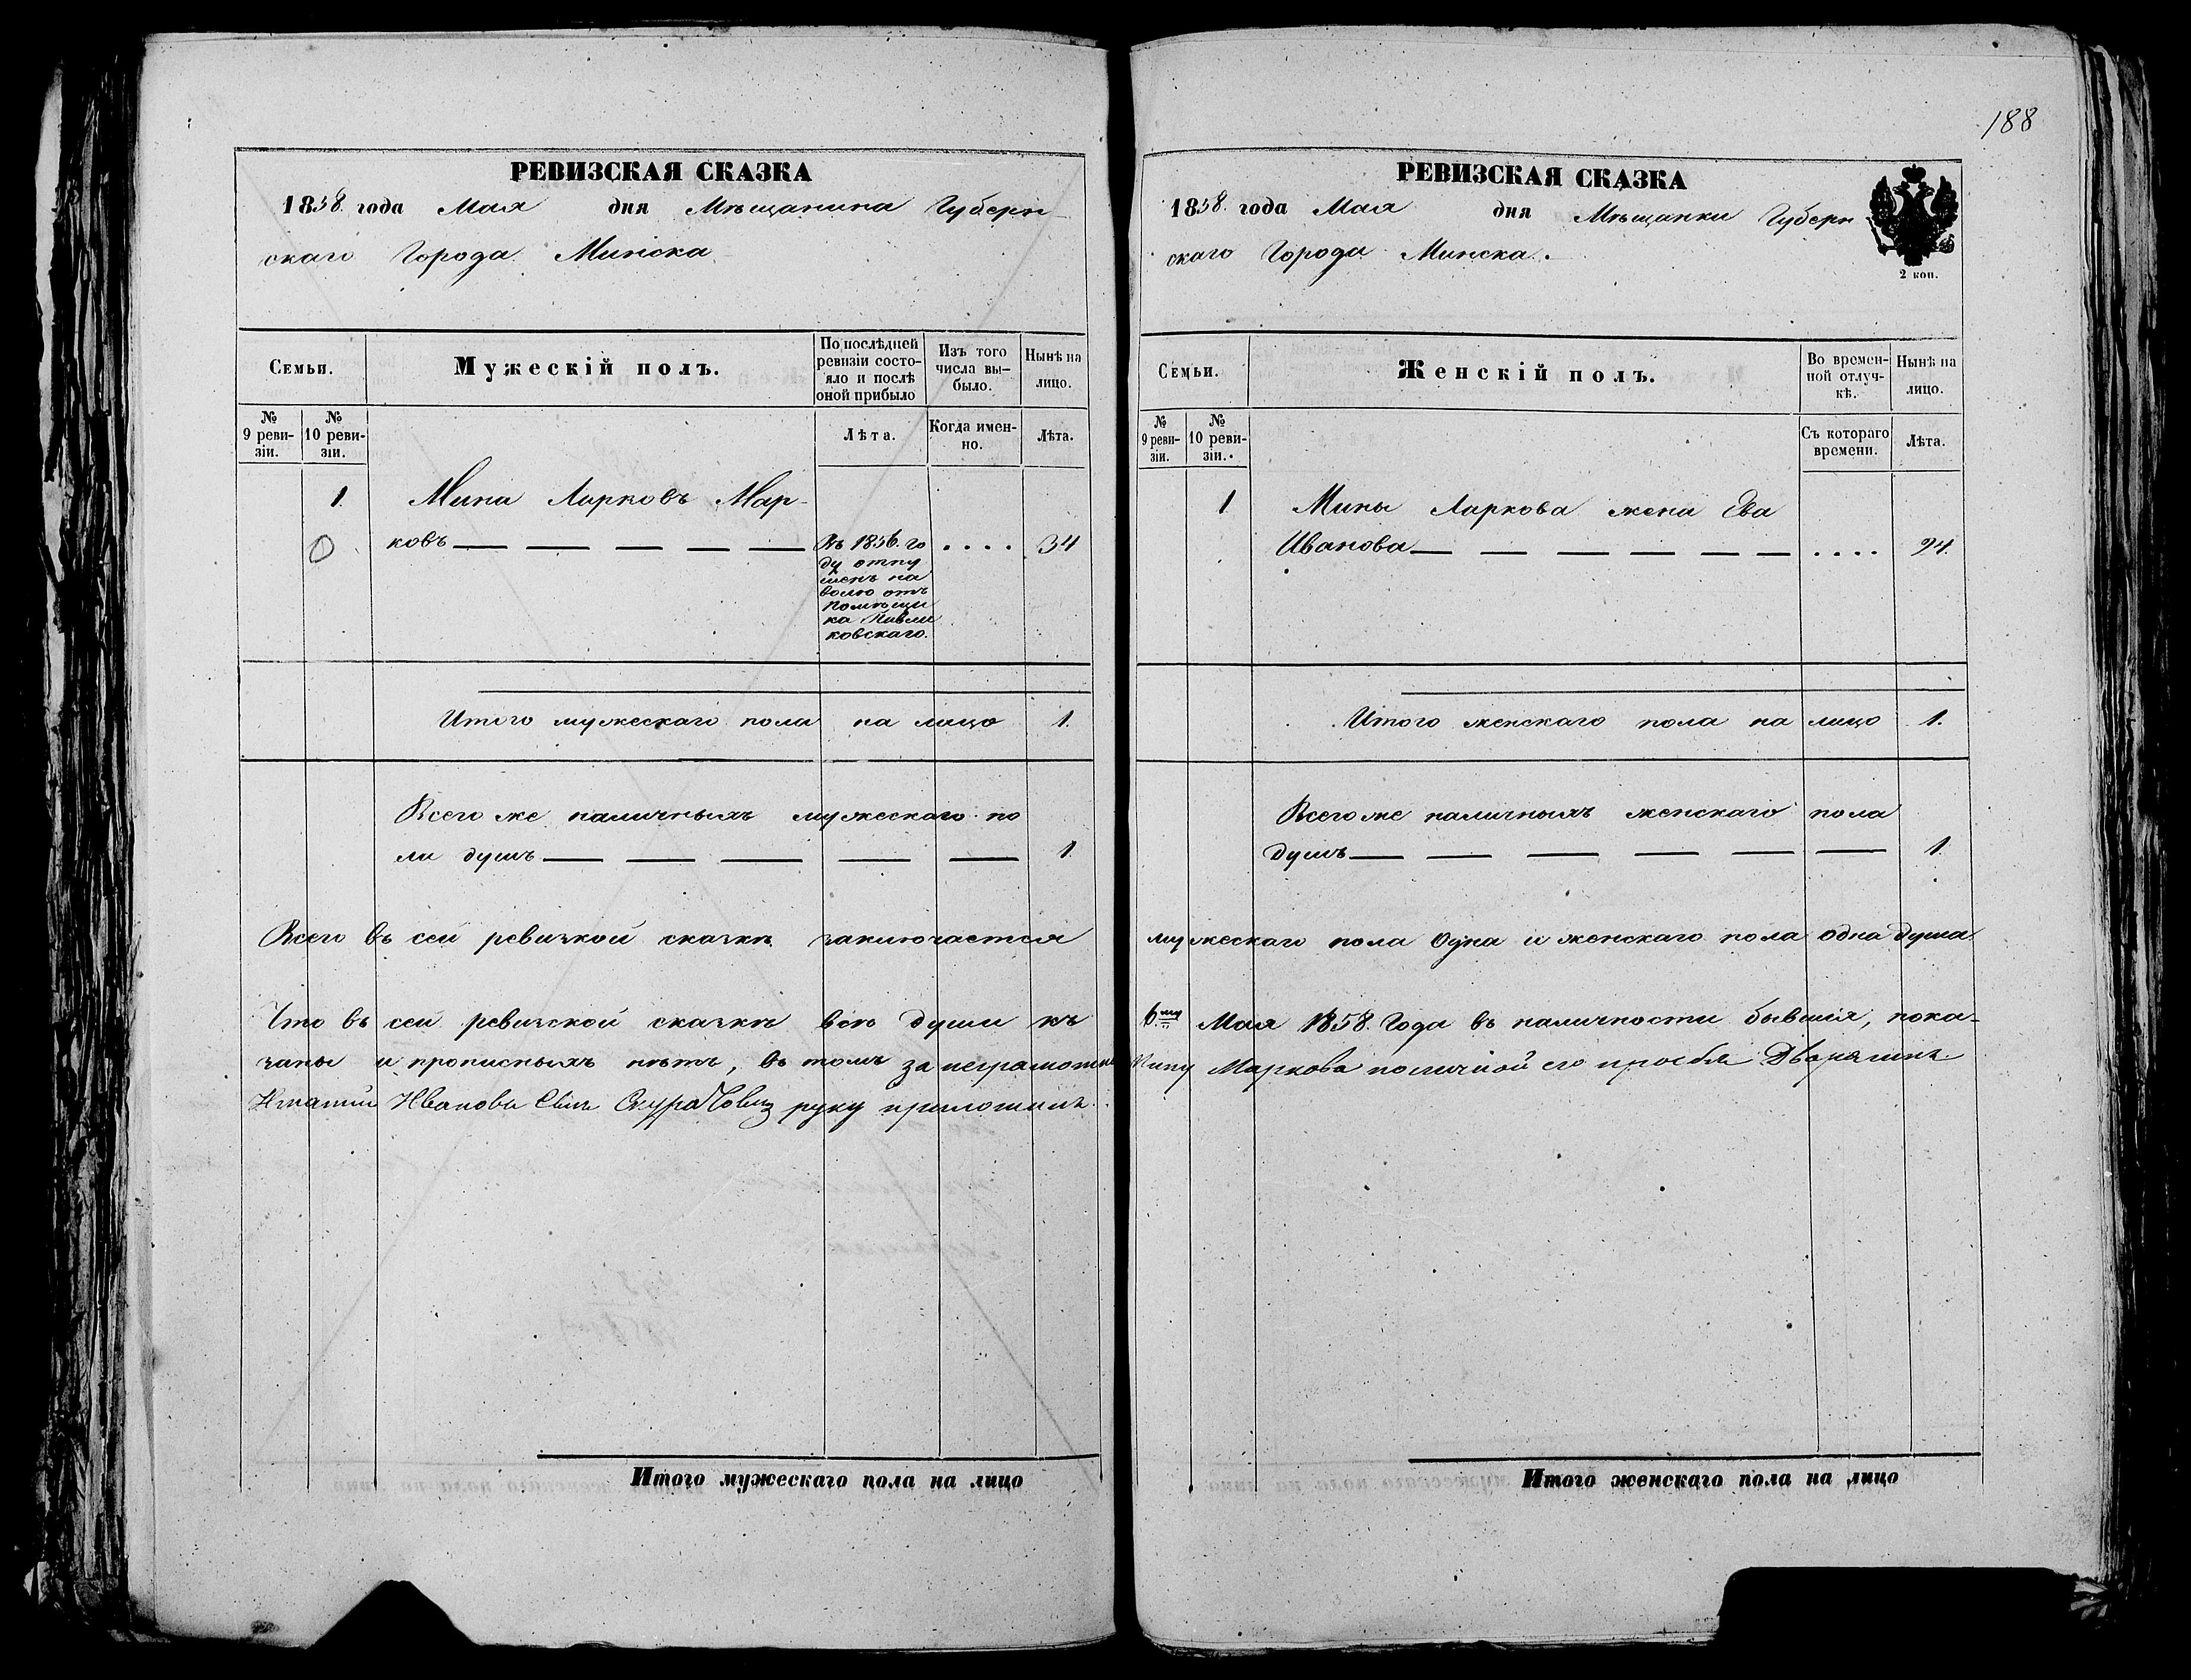 188
РЕВИЗСКАЯ СКАЗКА
1858. года Мая дня Мѣщанина Губерн-
скаго Города Минска
Семьи.
Мужескій полъ.
По послѣдней ревизіи состо-
яло и послѣ оной прибыло
Изъ того числа вы-
было.
Нынѣ на лицо.
№ 9 реви-
зіи.
№ 10 реви-
зіи.
Лѣта.
Когда имен-
но.
Лѣта.
1 Мина Ларковъ Мар-
0 ковъ 34
Въ 1856. го
ду отпу
щенъ на
волю отъ
помѣщи
ка Павли
ковскаго.
Итого мужескаго пола на лицо 1.
Всего же наличныхъ мужескаго по
ла душъ 1
РЕВИЗСКАЯ СКАЗКА
1858. года Мая дня Мѣщанки Губерн
скаго Города Минска.
2 коп.
Семьи.
Женскій полъ.
Во времен-
ной отлуч-
кѣ.
Нынѣ на лицо.
№ 9 реви-
зіи.
№ 10 реви-
зіи.
Съ котораго времени.
Лѣта.
1 Мины Ларкова жена Ева
Иванова 24.
Итого женскаго пола на лицо 1.
Всего же наличныхъ женскаго пола
душъ 1
Всего въ сей ревизкой сказкѣ заключается мужескаго пола одна и женскаго пола одна душа
Что въ сей ревизской сказкѣ всѣ души къ 6му Мая 1858. Года въ наличности бывшія, пока-
заны и прописныхъ нѣтъ, въ томъ за неграмотна Мину Маркова по личной его просьбѣ Дворянинъ
Ивановъ Сынъ руку приложилъ.
Итого мужескаго пола на лицо
Итого женскаго пола на лицо